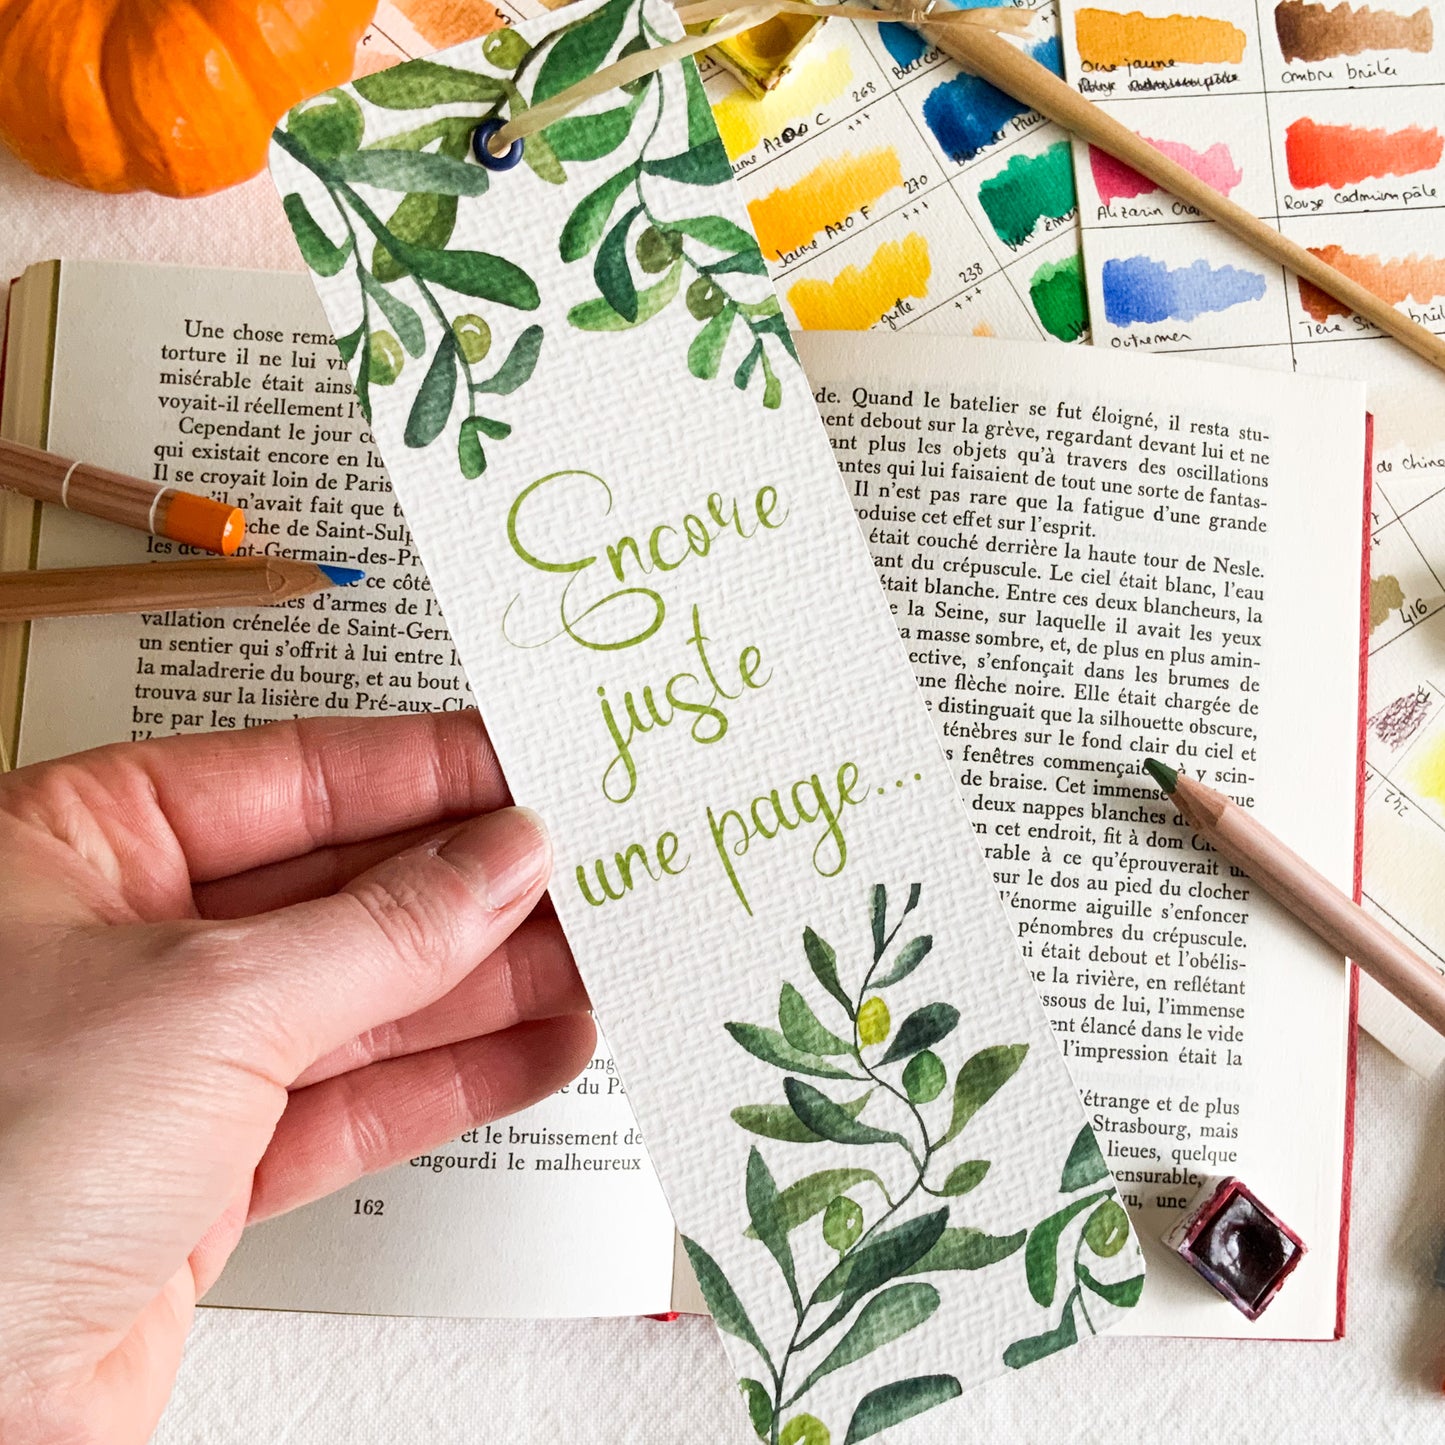 Encore
juste
une page...
Une chose
torture il ne lui
misérable était
voyait-il réellement
Cependant le jour
qui existait encore en
Il se croyait loin de Paris
n'avait fait que
de Saint-Sulp
nt-Germain-des-Pr
ce côté
d'armes de
vallation crénelée de Saint-Germ
un sentier qui s'offrit à lui entre
la maladrerie du bourg, et au bout
trouva sur la lisière du Pré-aux-Cle
bre par les
et le bruissement de
engourdi le malheureux
162
de. Quand le batelier se fut éloigné, il resta stu-
ent debout sur la grève, regardant devant lui et ne
ant plus les objets qu'à travers des oscillations
antes qui lui faisaient de tout une sorte de fantas-
Il n'est pas rare que la fatigue d'une grande
oduise cet effet sur l'esprit.
était couché derrière la haute tour de Nesle.
ant du crépuscule. Le ciel était blanc, l'eau
était blanche. Entre ces deux blancheurs, la
e la Seine, sur laquelle il avait les yeux
a masse sombre, et, de plus en plus amin-
ective, s'enfonçait dans les brumes de
une flèche noire. Elle était chargée de
e distinguait que la silhouette obscure,
ténèbres sur le fond clair du ciel et
s fenêtres à y scin-
de braise. Cet immense
deux nappes blanches
en cet endroit, fit à dom
rable à ce qu'éprouverait
sur le dos au pied du clocher
l'énorme aiguille s'enfoncer
pénombres du crépuscule.
i était debout et l'obélis-
e la rivière, en reflétant
essous de lui, l'immense
ent élancé dans le vide
l'impression était la
'étrange et de plus
Strasbourg, mais
lieues, quelque
ensurable,
une
268
+++
Jaune AZO F
270
+++
238
+++
Ocre jaune
Ombre brûlée
Alizarin
Rouge cadmium pâle
Outremer
de chine
416
242